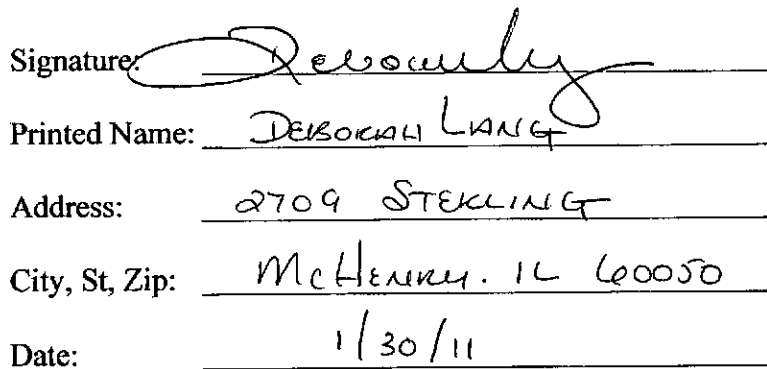 Signature:
Printed Name: DEBORAH LANG
Address: 2709 STERLING
City, St, Zip: McHENRY. IL 60050
Date: 1/30/11